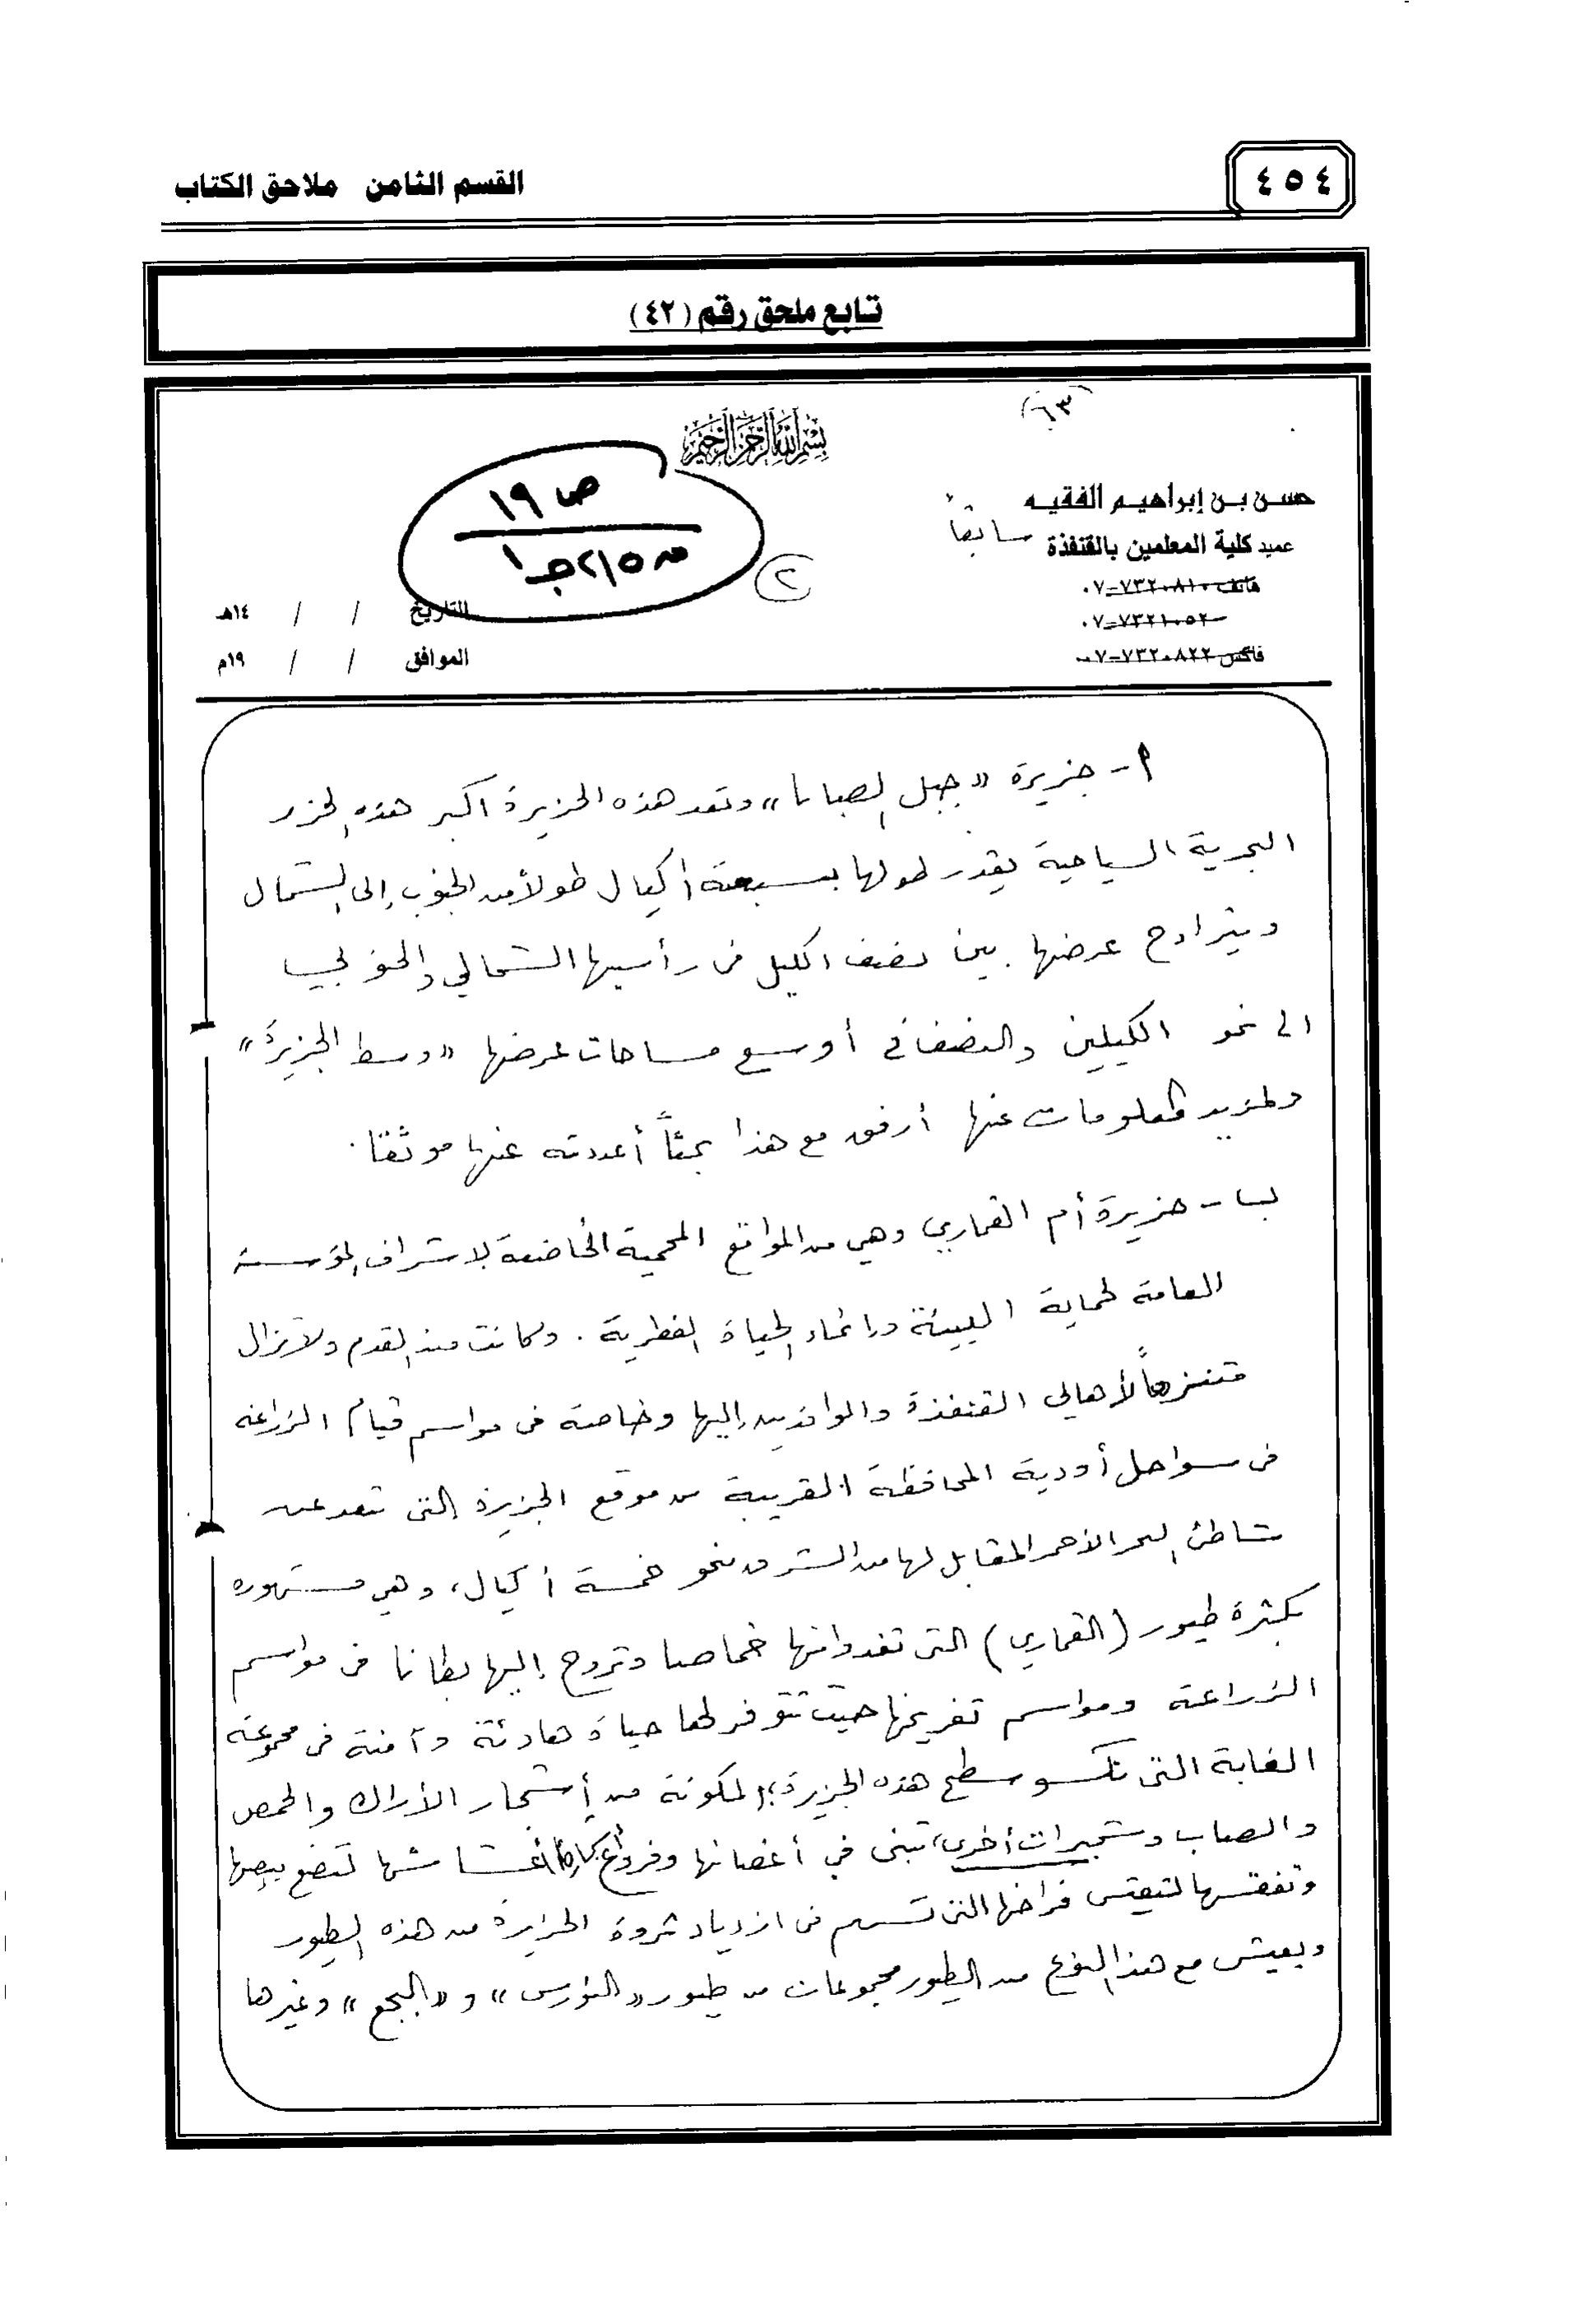 ٤٥٤
القسم الثامن   ملاحق الكتاب
تابع ملحق رقم (٤٢)
بسم الله الرحمن الرحيم
ص ١٩
حسن بن إبراهيم الفقيه
عميد كلية المعلمين بالقنفذة سابقا
(٢)
هاتف ٧٣٢٠٨١٠-٠٧
٧٣٢١٠٥٢-٠٧
فاكس ٧٣٢٠٨٢٢-٠٧
التاريخ / / ١٤هـ
الموافق / / ١٩م
أ- جزيرة «جبل الصبايا» وتعد هذه الجزيرة أكبر هذه الجزر
البحرية السياحية يقدر طولها بسبعة أكيال طولاً من الجنوب إلى الشمال
ويتراوح عرضها بين نصف الكيل في رأسيها الشمالي والجنوبي
الى نحو الكيلين والنصف في أوسع مساحات عرضها «وسط الجزيرة»
ولمزيد المعلومات عنها أرفق مع هذا بحثاً أعددته عنها موثقا.
ب- جزيرة أم القماري وهي من المواقع المحمية الخاضعة لاشراف المؤسسة
العامة لحماية البيئة وانماء الحياة الفطرية. وكانت منذ القدم ولاتزال
متنزهاً لأهالي القنفذة والوافدين إليها وخاصة في مواسم قيام الزراعة
في سواحل أودية المحافظة القريبة من موقع الجزيرة التي تبعد عن
شاطئ البحر الاحمر المقابل لها من الشرق نحو خمسة أكيال، وهي مشهوره
بكثرة طيور (القماري) التي تغدو منها خماصا وتروح إليها بطانا في مواسم
الزراعة ومواسم تفريخها حيث تتوفر لها حياة هادئة وآمنة في مجموعة
الغابة التي تكسو سطح هذه الجزيرة؛ المكونة من أشجار الأراك والحمض
والصباب وشجيرات أخرى، تبني في أغصانها وفروع أعشاشها لتضع بيضها
وتفقسها لتعيش فراخها التي تسهم في ازدياد ثروة الجزيرة من هذه الطيور
ويعيش مع هذا النوع من الطيور مجموعات من طيور «النورس» و«البجع» وغيرها